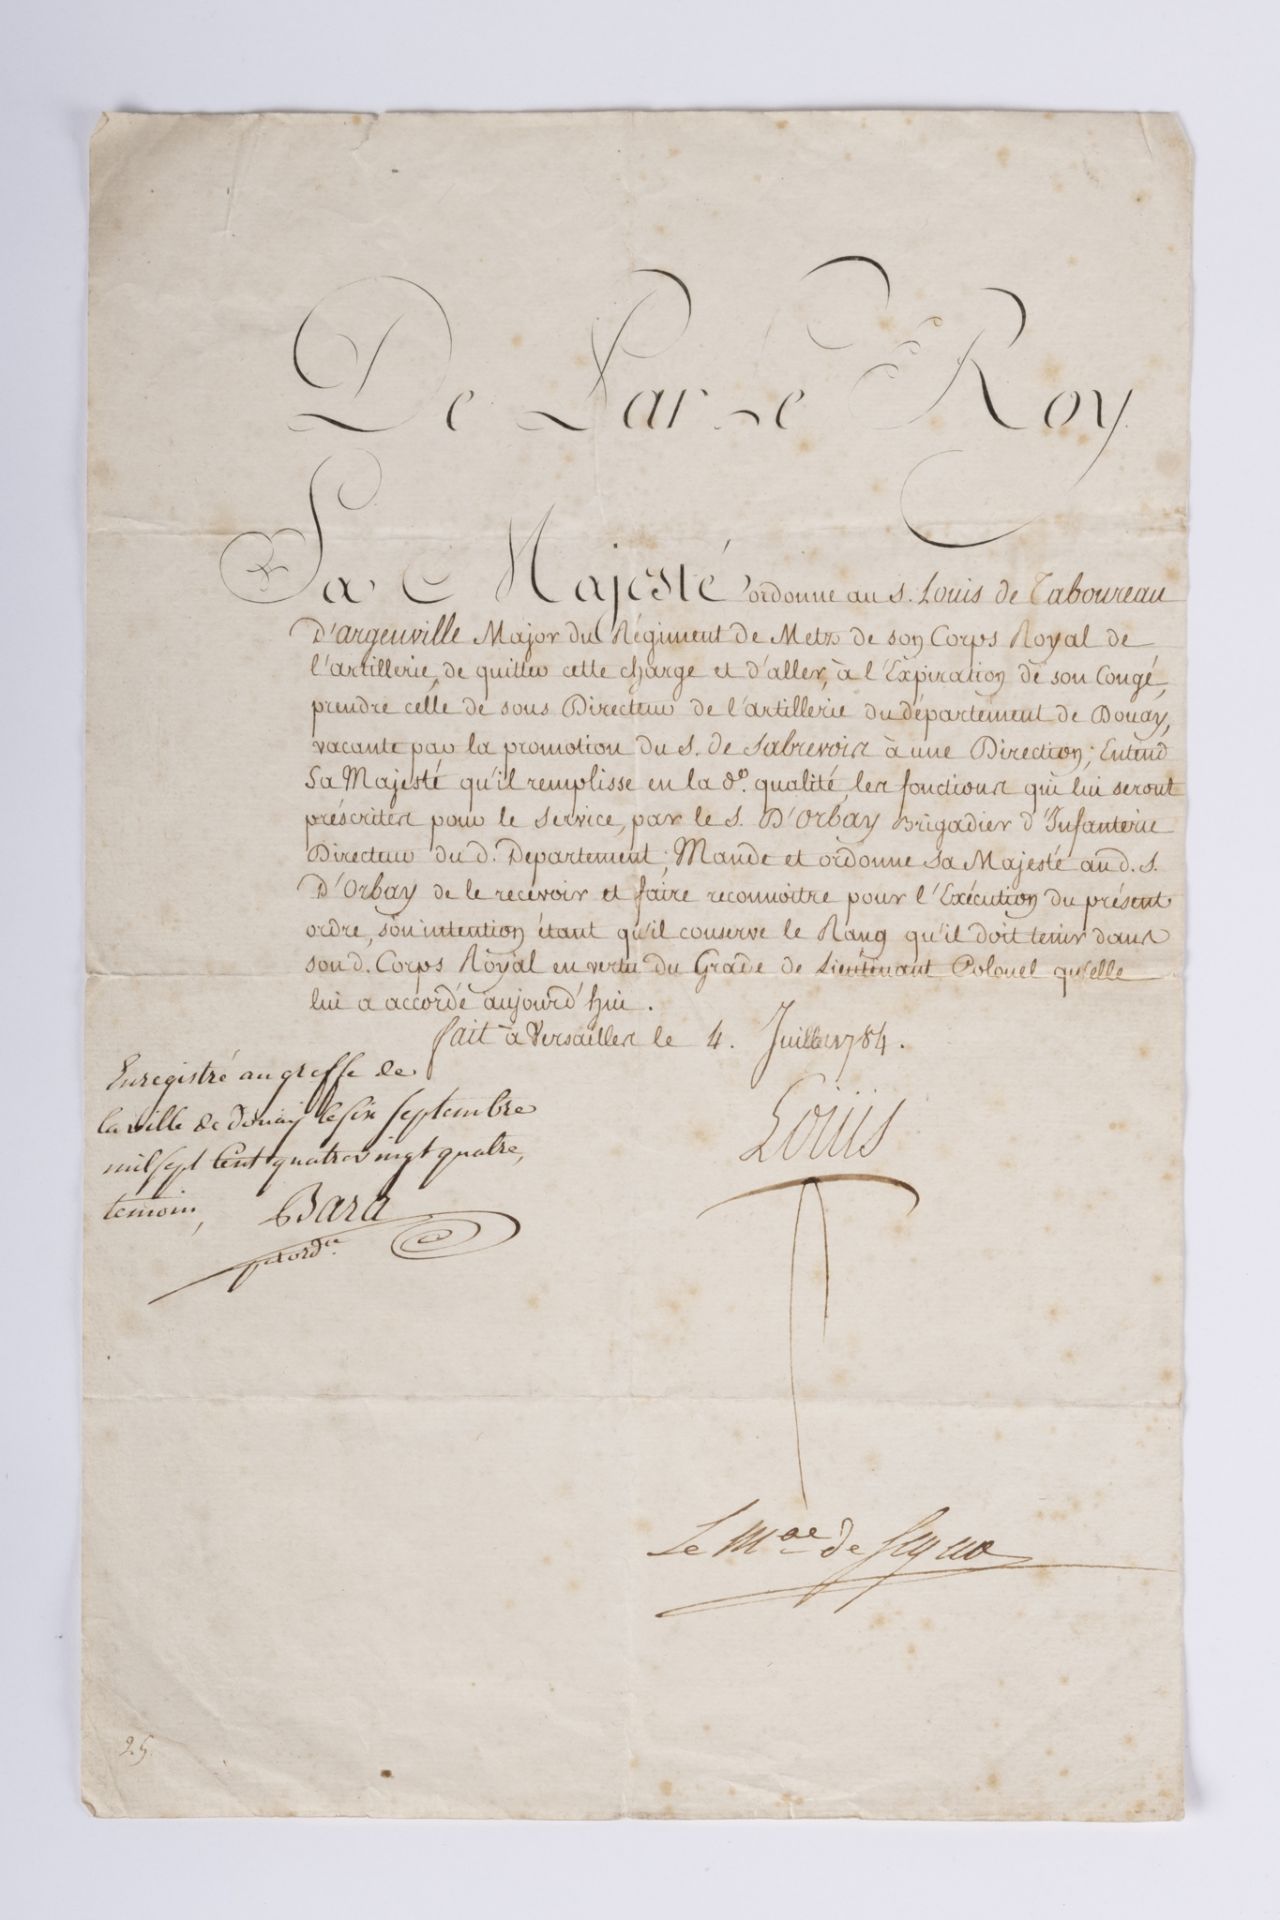 De Par Le Roy
Sa Majesté ordonne au S. Louis de Taboureau
D'argenville Major du Régiment de Metz de son Corps Royal de
l'artillerie, de quitter cette charge et d'aller, à l'Expiration de son Congé,
prendre celle de sous Directeur de l'artillerie du département de Douay,
vacante par la promotion du S. de Sabrevois à une Direction; Entend
Sa Majesté qu'il remplisse en la de. qualité, les fonctions qui lui seront
préscrites pour le service, par le S. D'Orbay Brigadier d'Infanterie
Directeur du d. Département; Mande et ordonne Sa Majesté au d. S.
D'Orbay de le recevoir et faire reconnoitre pour l'Exécution du présent
ordre, son intention étant qu'il conserve le Rang qu'il doit tenir dans
son d. Corps Royal en vertu du Grade de Lieutenant Colonel qu'elle
lui a accordé aujourd'hui.
fait à Versailles le 4. Juillet 1784.
Enregistré au greffe de
la ville de Douay le six septembre
mil sept Cent quatre vingt quatre,
temoin, Bara
par ordce.
Louis
Le Mal de Segur
25